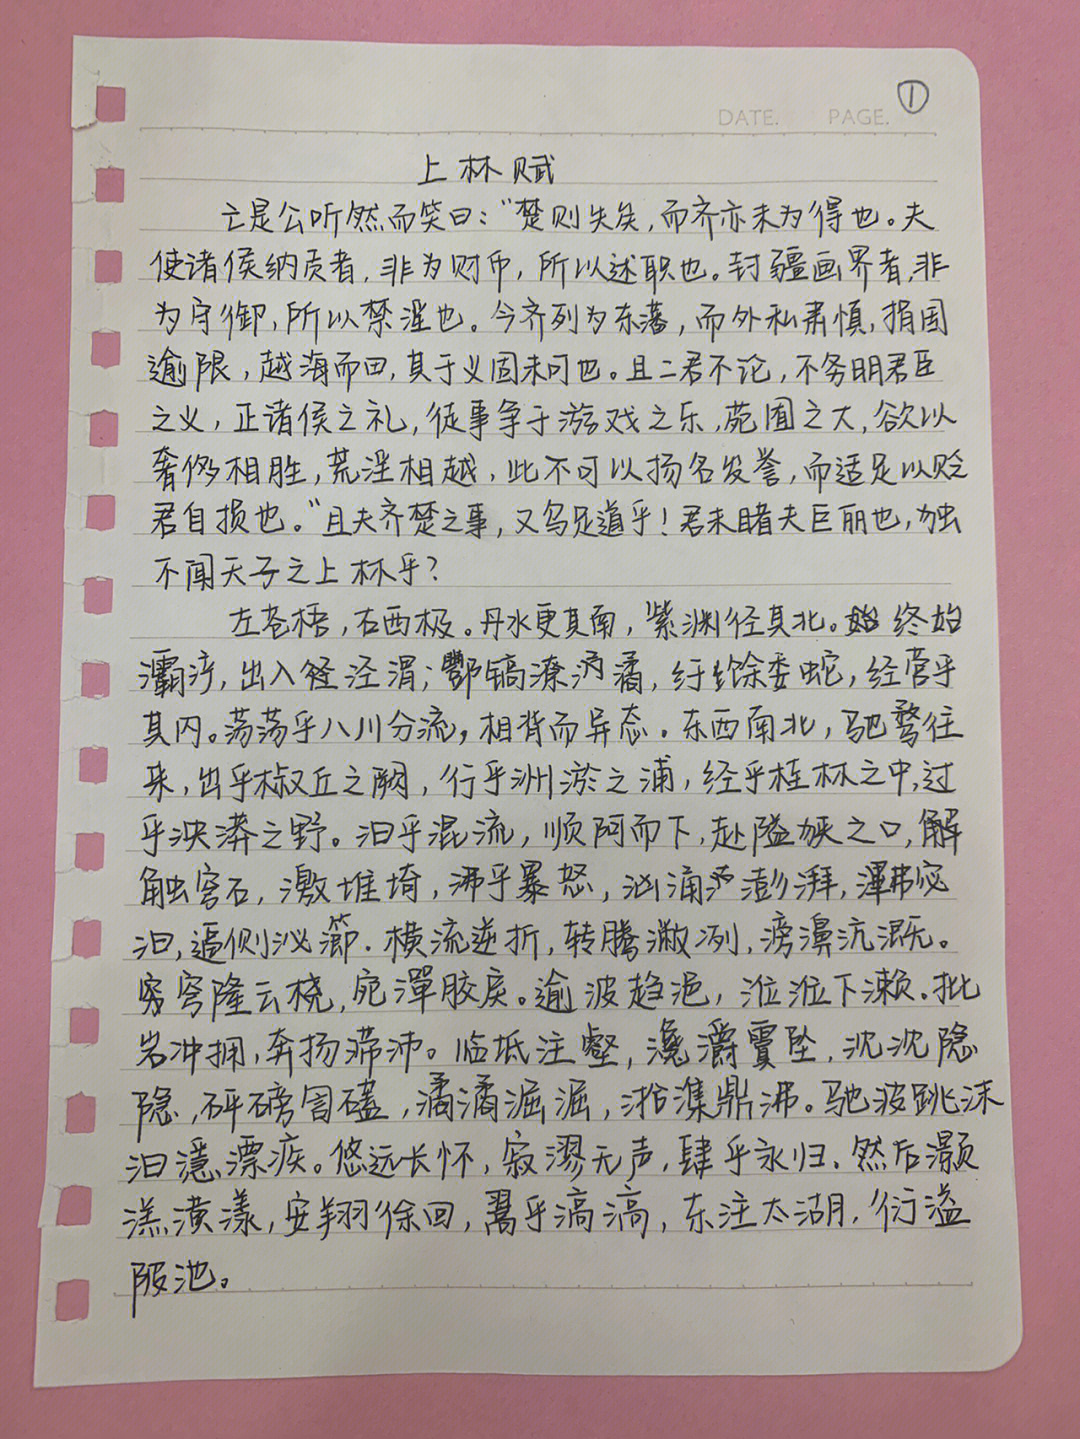 ①
DATE. PAGE.
上林赋
亡是公听然而笑曰："楚则失矣,而齐亦未为得也。夫
使诸侯纳贡者,非为财币,所以述职也。封疆画界者,非
为守御,所以禁淫也。今齐列为东藩,而外私肃慎,捐国
逾限,越海而田,其于义固未可也。且二君不论,不务明君臣
之义,正诸侯之礼,徒事争于游戏之乐,苑囿之大,欲以
奢侈相胜,荒淫相越,此不可以扬名发誉,而适足以贬
君自损也。"且夫齐楚之事,又乌足道乎！君未睹夫巨丽也,独
不闻天子之上林乎？
左苍梧,右西极。丹水更其南,紫渊径其北。终始
灞浐,出入泾渭；酆镐潦潏,纡馀委蛇,经营乎
其内。荡荡乎八川分流,相背而异态。东西南北,驰骛往
来,出乎椒丘之阙,行乎洲淤之浦,经乎桂林之中,过
乎泱漭之野。汩乎混流,顺阿而下,赴隘狭之口,解
触穹石,激堆埼,沸乎暴怒,汹涌澎湃,滭弗宓
汩,逼侧泌瀄.横流逆折,转腾潎洌,滂濞沆溉。
穹隆云桡,宛潬胶戾。逾波趋浥,涖涖下濑.批
岩冲拥,奔扬滞沛。临坻注壑,瀺灂霣坠,沈沈隐
隐,砰磅訇礚,潏潏淈淈,湁潗鼎沸。驰波跳沫
汩㴔漂疾。悠远长怀,寂漻无声,肆乎永归.然后灏
溔潢漾,安翔徐回,翯乎滈滈,东注太湖,衍溢
陂池。